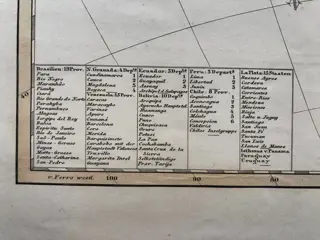 40
Brasilien: 19 Prov.
Para
Rio Negro
Maranhao
Piauhy
Ceara
Rio Grande do Norte
Parahyba
Pernambuco
Alagoas
Sergipe del Rey
Bahia
Espiritu Santo
Rio de Janeiro
Minas-Geraes
Goyaz
Matto-Grosso
Santa-Catharina
San-Pedro
S. Granada: 4 Dep.
Cundinamarca 1
Cauca 2
Magdalena 5
Boyaca 4
Venezuela: 13 Prov.
Caracas
Maracaybo
Varinas
Apure
Cumana
Barcelona
Coro
Merida
Barquisimeto
Carabobo mit der
Hauptstadt Valencia
Truxillo
Margarita Insel
Guayana
Ecuador: 3 Dep.
Ecuador 1
Guayaquil 2
Assuay 3
Bolivia: 10 Dep.
Arequipa
Potosi
Charcas
Oruro
Potosi
La Paz
Cochabamba
Santa Cruz de la
Sierra
Peru: 5 Depart.
Lima 1
Libertad 2
Junin 3
Chile: 8 Prov.
Coquimbo 1
Aconcagua 2
Santiago 3
Maule 5
Concepcion 6
Valdivia 7
La Plata: 15 Staaten
Buenos Ayres
Cordova
Catamarca
Corrientes
Entre-Rios
Mendoza
Rioja
Salta u. Jujuy
Santiago
San Juan
Santa Fé
Tucuman
San Luis
Llanos de Manso
Isthmus v. Panama
Paraguay
Uruguay
v. Ferro westl.
100
90